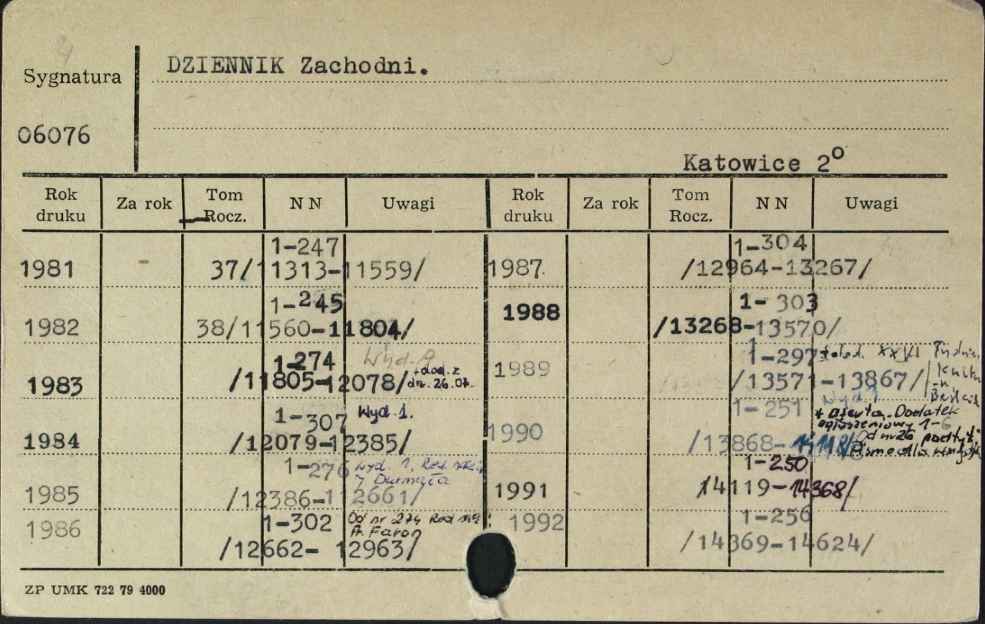 DZIENNIK Zachodni.
Sygnatura
06076
Katowice 2°
Rok druku Za rok Tom Rocz. N N Uwagi Rok druku Za rok Tom Rocz. N N Uwagi
1-247
1981 - 37/11313-11559/
1-245
1982 38/11560-11804/
1-274 Wyd. A
+dod. z
1983 /11805-12078/ dn. 26.07.
1-307 Wyd. 1.
1984 /12079-12385/
1-276 Wyd. 1. Red.
1985 /12386-12661/
1-302 Od nr 274 Red.
1986 A. Faron
/12662- 12963/
1-304
1987. /12964-13267/
1- 303
1988 /13268-13570/
1-297 XXVI
1989 /13571-13867/
1-251 + Oferta-Dodatek
ogłoszeniowy 1-6
1990 /13868-14118/ Od nr 26
1-250
1991 14119-14368/
1-256
1992 /14369-14624/
ZP UMK 722 79 4000